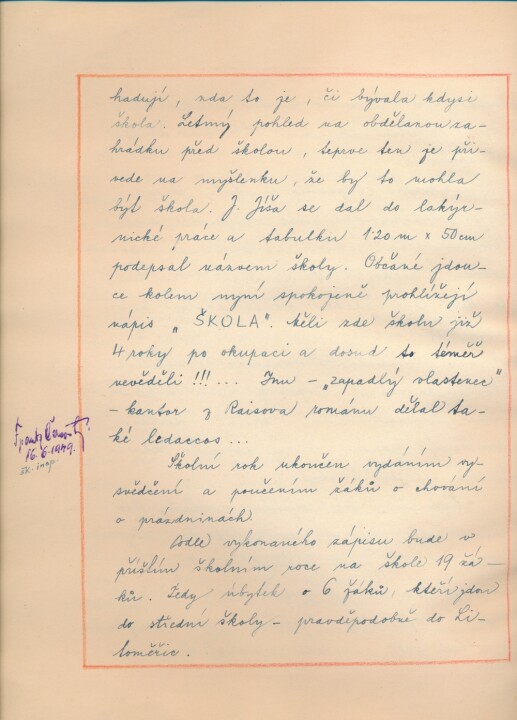 hadují, zda to je, či bývala kdysi
škola. Letmý pohled na obdělanou za-
hrádku před školou, teprve ten je při-
vede na myšlenku, že by to mohla
být škola. J. Jíša se dal do lakýr-
nické práce a tabulku 1·20 m x 50 cm
podepsal názvem školy. Občané jdou-
ce kolem nyní spokojeně prohlížejí
nápis „ŠKOLA". Měli zde školu již
4 roky po okupaci a dosud to téměř
nevěděli !!! ... Inu – „zapadlý vlastenec"
– kantor z Raisova románu dělal ta-
ké ledaccos ...
16.6.1949.
šk. insp.
Školní rok ukončen vydáním vy-
svědčení a poučením žáků o chování
o prázdninách.
Podle vykonaného zápisu bude v
příštím školním roce na škole 19 žá-
ků. Tedy úbytek o 6 žáků, kteří jdou
do střední školy – pravděpodobně do Li-
toměřic.